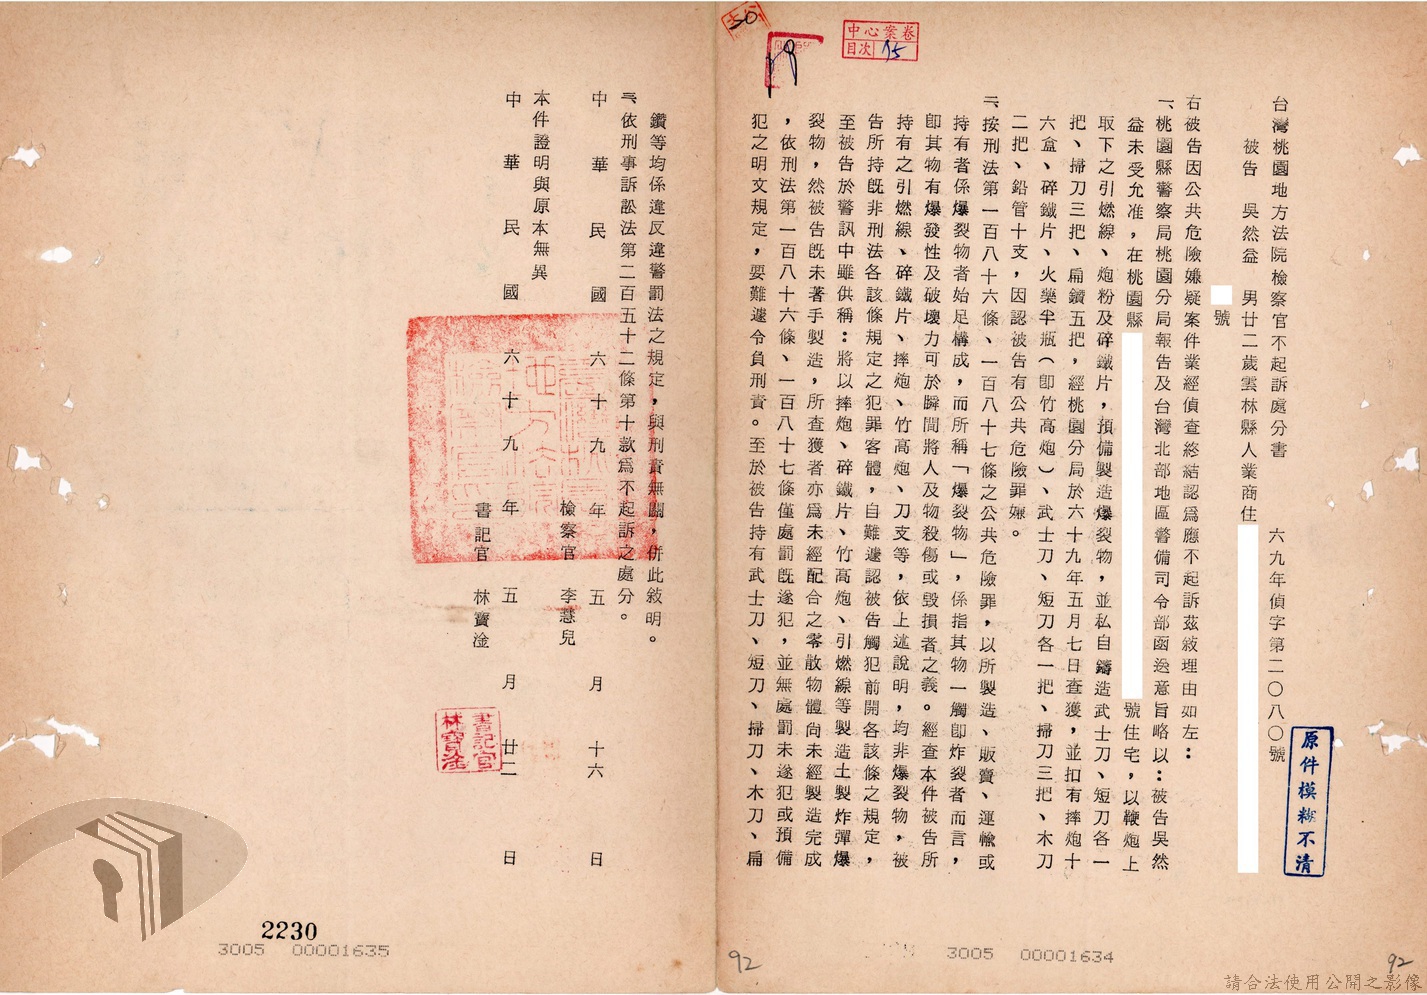 中心案卷
目次 75
台灣桃園地方法院檢察官不起訴處分書
六九年偵字第二〇八〇號
被告 吳然益 男廿二歲雲林縣人業商住
號
右被告因公共危險嫌疑案件業經偵查終結認爲應不起訴茲敘理由如左：
一、桃園縣警察局桃園分局報告及台灣北部地區警備司令部函送意旨略以：被告吳然
益未受允准，在桃園縣 號住宅，以鞭炮上
取下之引燃線、炮粉及碎鐵片，預備製造爆裂物，並私自鑄造武士刀、短刀各一
把、掃刀三把、扁鑽五把，經桃園分局於六十九年五月七日查獲，並扣有摔炮十
六盒、碎鐵片、火藥半瓶（卽竹高炮）、武士刀、短刀各一把、掃刀三把、木刀
二把、鉛管十支，因認被告有公共危險罪嫌。
二、按刑法第一百八十六條、一百八十七條之公共危險罪，以所製造、販賣、運輸或
持有者係爆裂物者始足構成，而所稱「爆裂物」，係指其物一觸卽炸裂者而言，
卽其物有爆發性及破壞力可於瞬間將人及物殺傷或毀損者之義。經查本件被告所
持有之引燃線、碎鐵片、摔炮、竹高炮、刀支等，依上述說明，均非爆裂物，被
告所持旣非刑法各該條規定之犯罪客體，自難遽認被告觸犯前開各該條之規定，
至被告於警訊中雖供稱：將以摔炮、碎鐵片、竹高炮、引燃線等製造土製炸彈爆
裂物，然被告旣未著手製造，所查獲者亦爲未經配合之零散物體尙未經製造完成
，依刑法第一百八十六條、一百八十七條僅處罰旣遂犯，並無處罰未遂犯或預備
犯之明文規定，要難遽令負刑責。至於被告持有武士刀、短刀、掃刀、木刀、扁
原件模糊不清
3005 00001634
92
92
鑽等均係違反違警罰法之規定，與刑責無關，併此敘明。
三、依刑事訴訟法第二百五十二條第十款爲不起訴之處分。
中華民國六十九年五月十六日
檢察官 李慧兒
本件證明與原本無異
中華民國六十九年五月廿二日
書記官 林寶淦
書記官
林寶淦
2230
3005 00001635
請合法使用公開之影像